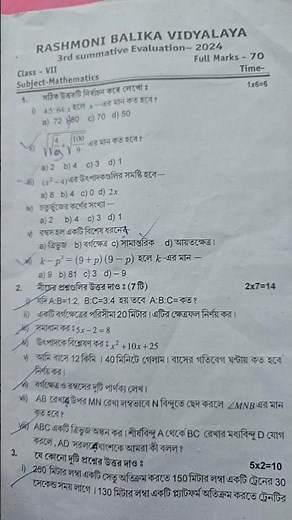 RASHMONI BALIKA VIDYALAYA
3rd summative Evaluation– 2024
Class - VII
Full Marks - 70
Subject-Mathematics
Time-
1. সঠিক উত্তরটি নির্বাচন করে লেখো ঃ
1x6=6
i) 4:5::64:x হলে x —এর মান কত হবে ?
a) 72 b) 80 c) 70 d) 50
ii) √4/ + √100/9 এর মান কত হবে ?
a) 2 b) 4 c) 3 d) 1
iii) (x² − 4) এর উৎপাদকগুলির সমষ্টি হবে—
a) 8 b) 4 c) 0 d) 2x
iv) চতুর্ভুজের কর্ণের সংখ্যা —
a) 2 b) 4 c) 3 d) 1
v) রম্বস হল একটি বিশেষ ধরনের
a) ত্রিভুজ b) বর্গক্ষেত্র c) সামান্তরিক d) আয়তক্ষেত্র।
vi) k − p² = (9 + p)(9 − p) হলে k-এর মান —
a) 9 b) 81 c) 3 d) −9
2. নীচের প্রশ্নগুলির উত্তর দাও ঃ (7 টি)
2x7=14
i) যদি A:B=1:2, B:C=3:4 হয় তবে A:B:C=কত ?
ii) একটি বর্গক্ষেত্রের পরিসীমা 20 মিটার। এটির ক্ষেত্রফল নির্ণয় কর।
iii) সমাধান কর ঃ 5x − 2 = 8
iv) উৎপাদকে বিশ্লেষণ কর ঃ x² + 10x + 25
v) আমি বাসে 12 কিমি । 40 মিনিটে গেলাম। বাসের গতিবেগ ঘন্টায় কত হবে
নির্ণয় কর।
vi) বর্গক্ষেত্র ও রম্বসের দুটি পার্থক্য লেখ।
vii) AB রেখার উপর MN রেখা লম্বভাবে N বিন্দুতে ছেদ করলে ∠MNB এর মান
কত হবে ?
viii) ABC একটি ত্রিভুজ অঙ্কন কর। শীর্ষবিন্দু A থেকে BC রেখার মধ্যবিন্দু D যোগ
করলে , AD সরলরেখাংশকে আমরা কী বলব ?
3. যে কোনো দুটি প্রশ্নের উত্তর দাও ঃ
5x2=10
i) 250 মিটার লম্বা একটি সেতু অতিক্রম করতে 150 মিটার লম্বা একটি ট্রেনের 30
সেকেন্ড সময় লাগে । 130 মিটার লম্বা একটি প্ল্যাটফর্ম অতিক্রম করতে ট্রেনটির